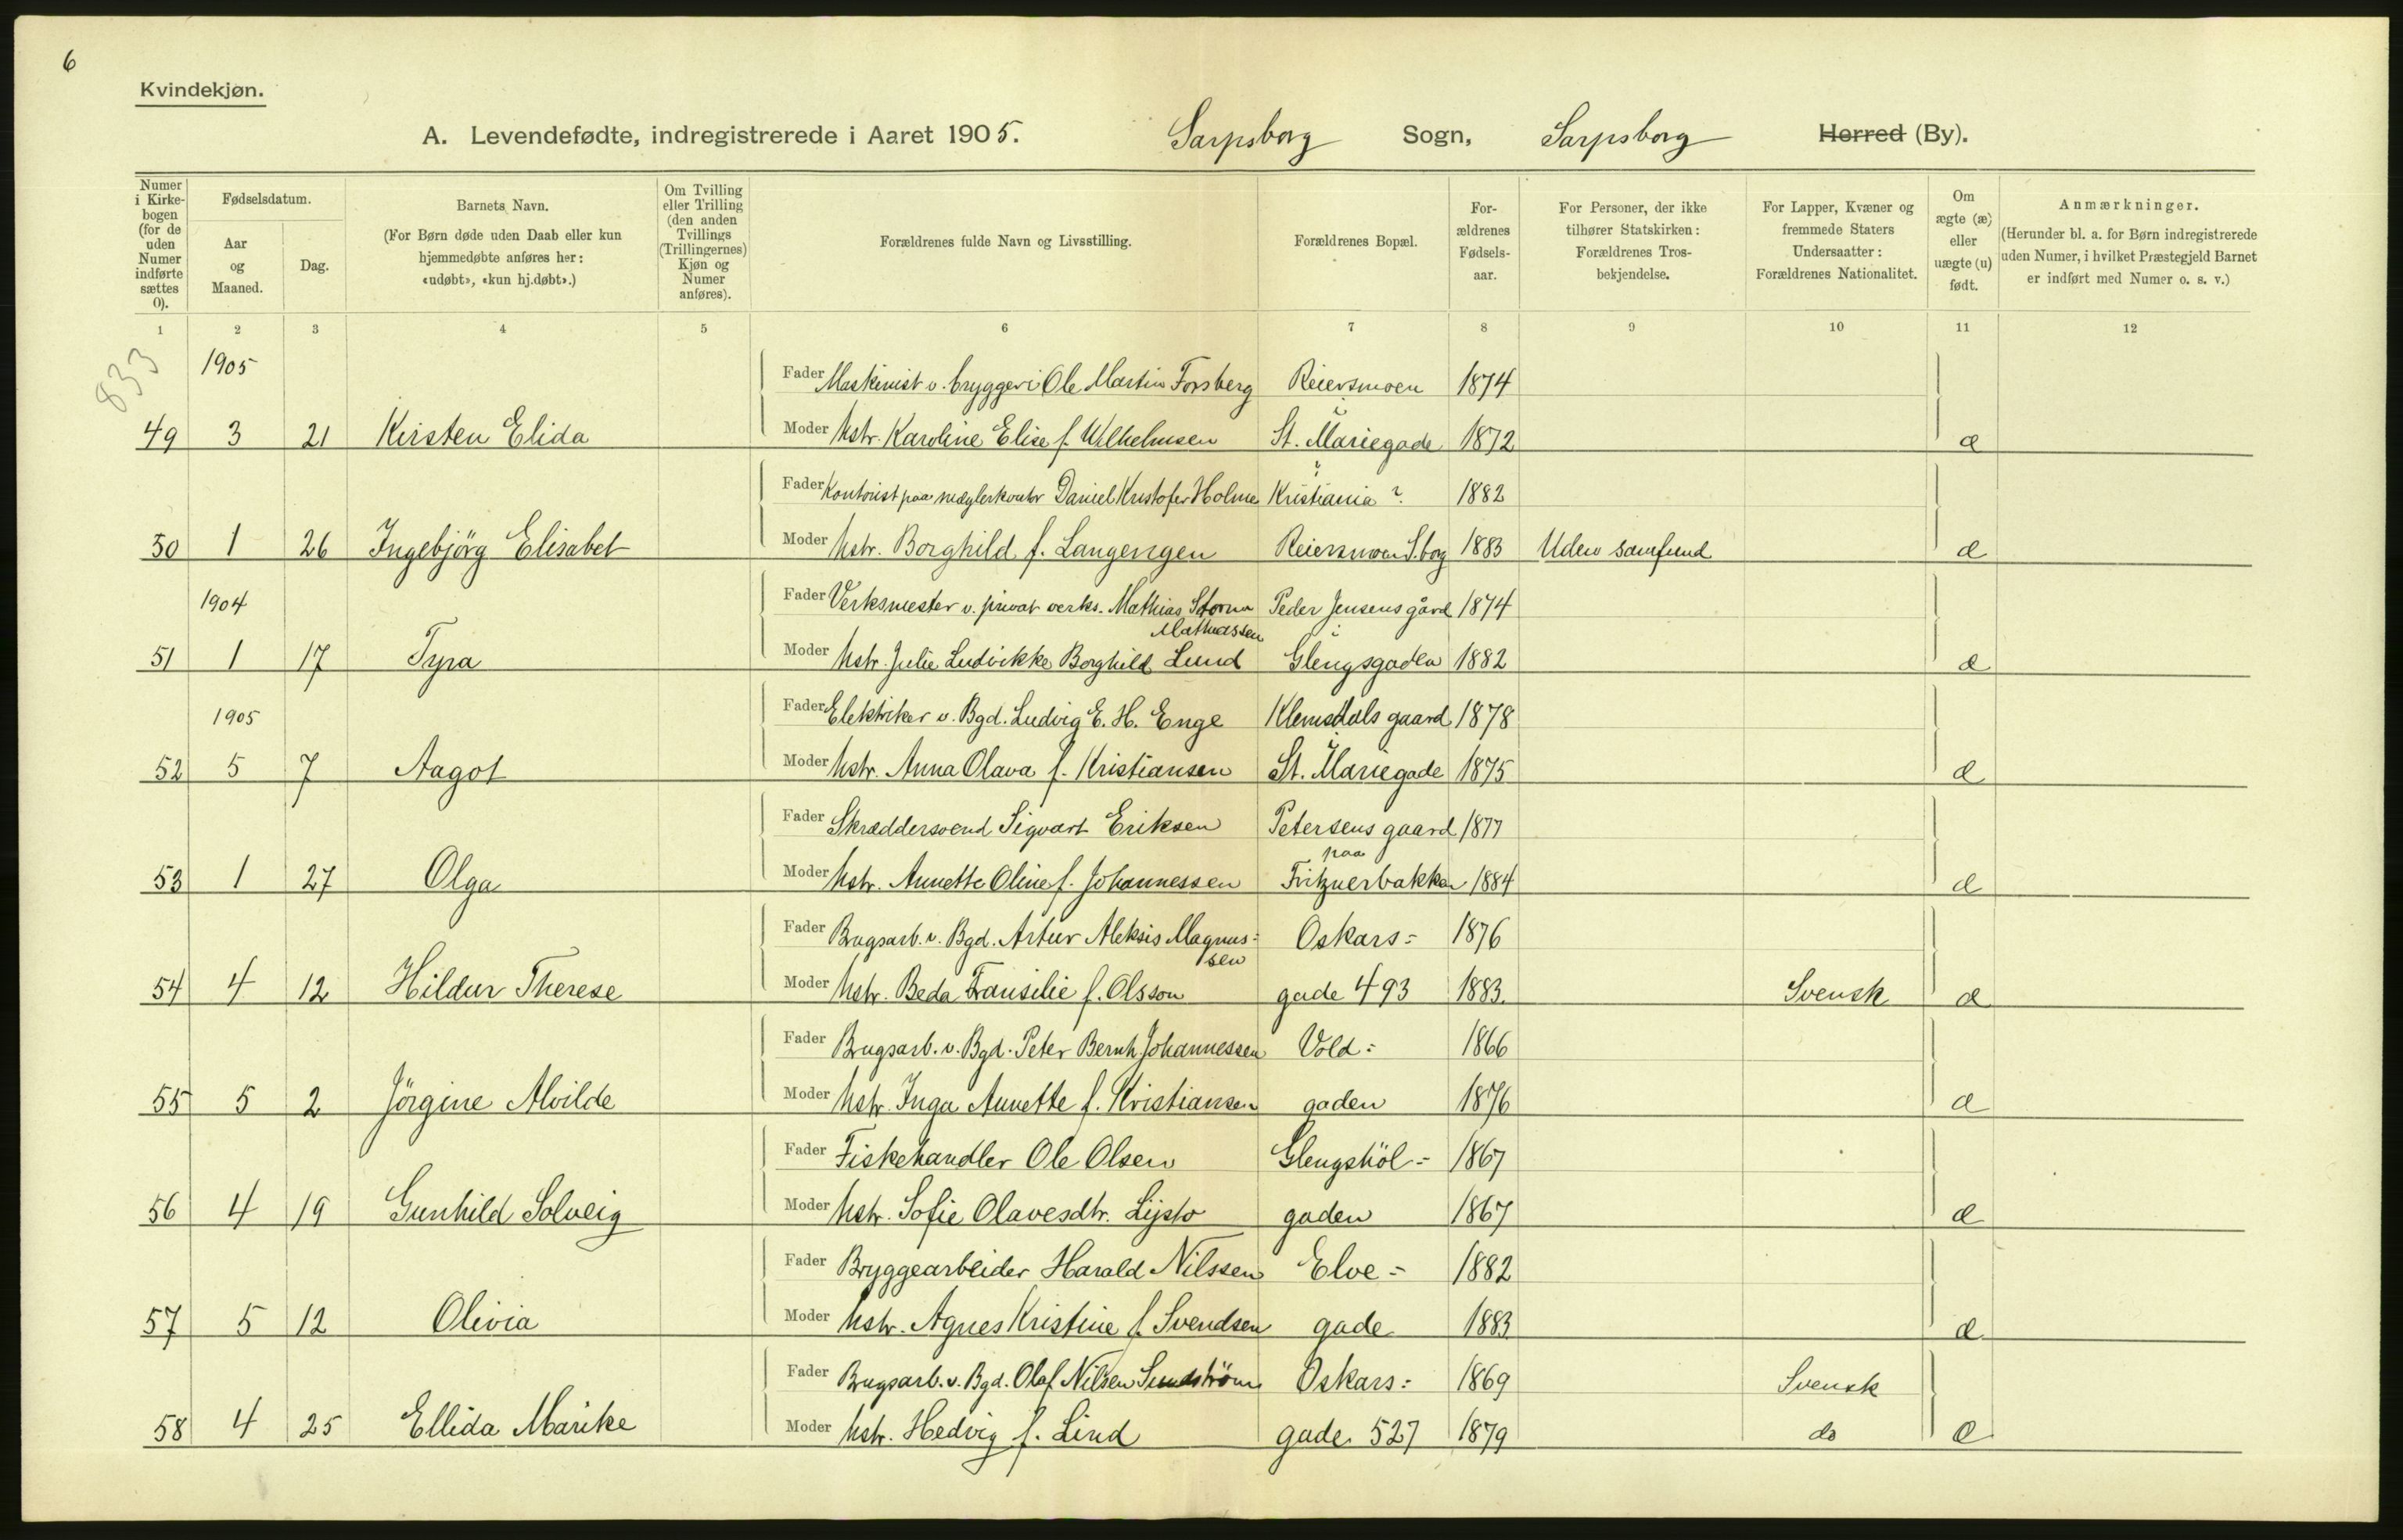 6
Kvindekjøn.
A. Levendefødte, indregistrerede i Aaret 1905. Sarpsborg Sogn, Sarpsborg Herred (By).
Numer i Kirkebogen (for de uden Numer indførte sættes 0).
Fødselsdatum.
Aar og Maaned.
Dag.
Barnets Navn.
(For Børn døde uden Daab eller kun hjemmedøbte anføres her: «udøbt», «kun hj.døbt».)
Om Tvilling eller Trilling (den anden Tvillings (Trillingernes) Kjøn og Numer anføres).
Forældrenes fulde Navn og Livsstilling.
Forældrenes Bopæl.
Forældrenes Fødselsaar.
For Personer, der ikke tilhører Statskirken: Forældrenes Trosbekjendelse.
For Lapper, Kvæner og fremmede Staters Undersaatter: Forældrenes Nationalitet.
Om ægte (æ) eller uægte (u) født.
Anmærkninger.
(Herunder bl. a. for Børn indregistrerede uden Numer, i hvilket Præstegjeld Barnet er indført med Numer o. s. v.)
1 2 3 4 5 6 7 8 9 10 11 12
833
1905
Fader Maskinist v. bryggeri Ole Martin Forsberg Reiersmoen 1874
49 3 21 Kirsten Elida Moder Hstr. Karoline Elise f. Wilhelmsen St. Mariegade 1872 æ
Fader Kontorist paa mæglerkontor Daniel Kristofer Holme Kristiania ? 1882
50 1 26 Ingebjörg Elisabet Moder Hstr. Borghild f. Langengen Reiersmoen S.borg 1883 Uden samfund æ
1904
Fader Verksmester v. privat verks. Mathias Storm Peder Jensens gård 1874
Mathiassen
51 1 17 Tyra Moder Hstr. Julie Ludvikke Borghild Lund Glengsgaden 1882 æ
1905
Fader Elektriker v. Bgd. Ludvig E. H. Enge Klemsdals gaard 1878
52 5 7 Aagot Moder Hstr. Anna Olava f. Kristiansen St. Mariegade 1875 æ
Fader Skræddersvend Sigvart Eriksen Petersens gaard 1877
paa
53 1 27 Olga Moder Hstr. Annette Oline f. Johannessen Fritznerbakken 1884 æ
Fader Brugsarb. v. Bgd. Artur Aleksis Magnus= Oskars= 1876
sen
54 4 12 Hildur Therese Moder Hstr. Beda Fransilie f. Olsson gade 493 1883. Svensk æ
Fader Brugsarb. v. Bgd. Peter Bernh Johannessen Vold= 1866
55 5 2 Jörgine Alvilde Moder Hstr. Inga Annette f. Kristiansen gaden 1876 æ
Fader Fiskehandler Ole Olsen Glengshöl= 1867
56 4 19 Gunhild Solveig Moder Hstr. Sofie Olavesdtr. Lysto gaden 1867 æ
Fader Bryggearbeider Harald Nilssen Elve= 1882
57 5 12 Olivia Moder Hstr. Agnes Kristine f. Svendsen gade 1883 æ
Fader Brugsarb. v. Bgd. Olaf Nilsen Sundström Oskars= 1869 Svensk
58 4 25 Ellida Marike Moder Hstr. Hedvig f. Lind gade 527 1879 do æ